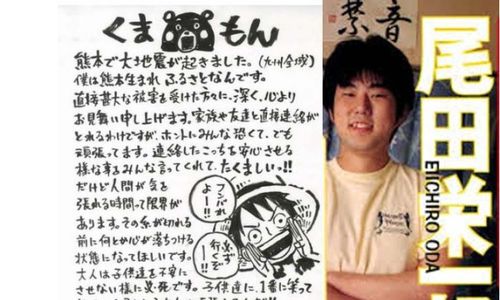 くまもん
熊本で大地震が起きました。(九州全域)
僕は熊本生まれ ふるさとなんです。
直接甚大な被害を受けた方々に、深く、心より
お見舞い申し上げます。家族や友達と直接連絡が
とれるわけですが、ホントにみんな恐くて、でも
頑張ってます。連絡したこっちを安心させる
様な事をみんな言ってくれて、たくましいっ!!
だけど人間が気を
張れる時間って限界が
あります。その糸が切れる
前に何とか心が落ちつける
状態になってほしいです。
大人は子供達を不安に
させない様に必死です。子供達に、1番に笑って
フンバれよー!!
必ず行くぞー!!
音
禁
尾田栄一
EIICHIRO ODA